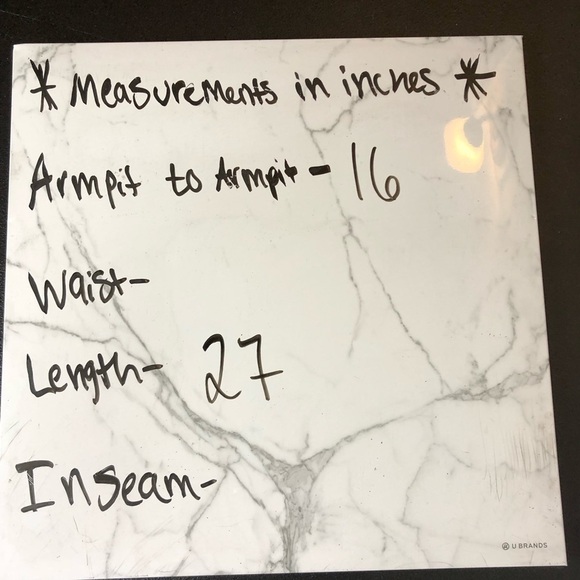 * Measurements in inches *
Armpit to Armpit - 16
Waist-
Length- 27
Inseam-
U BRANDS